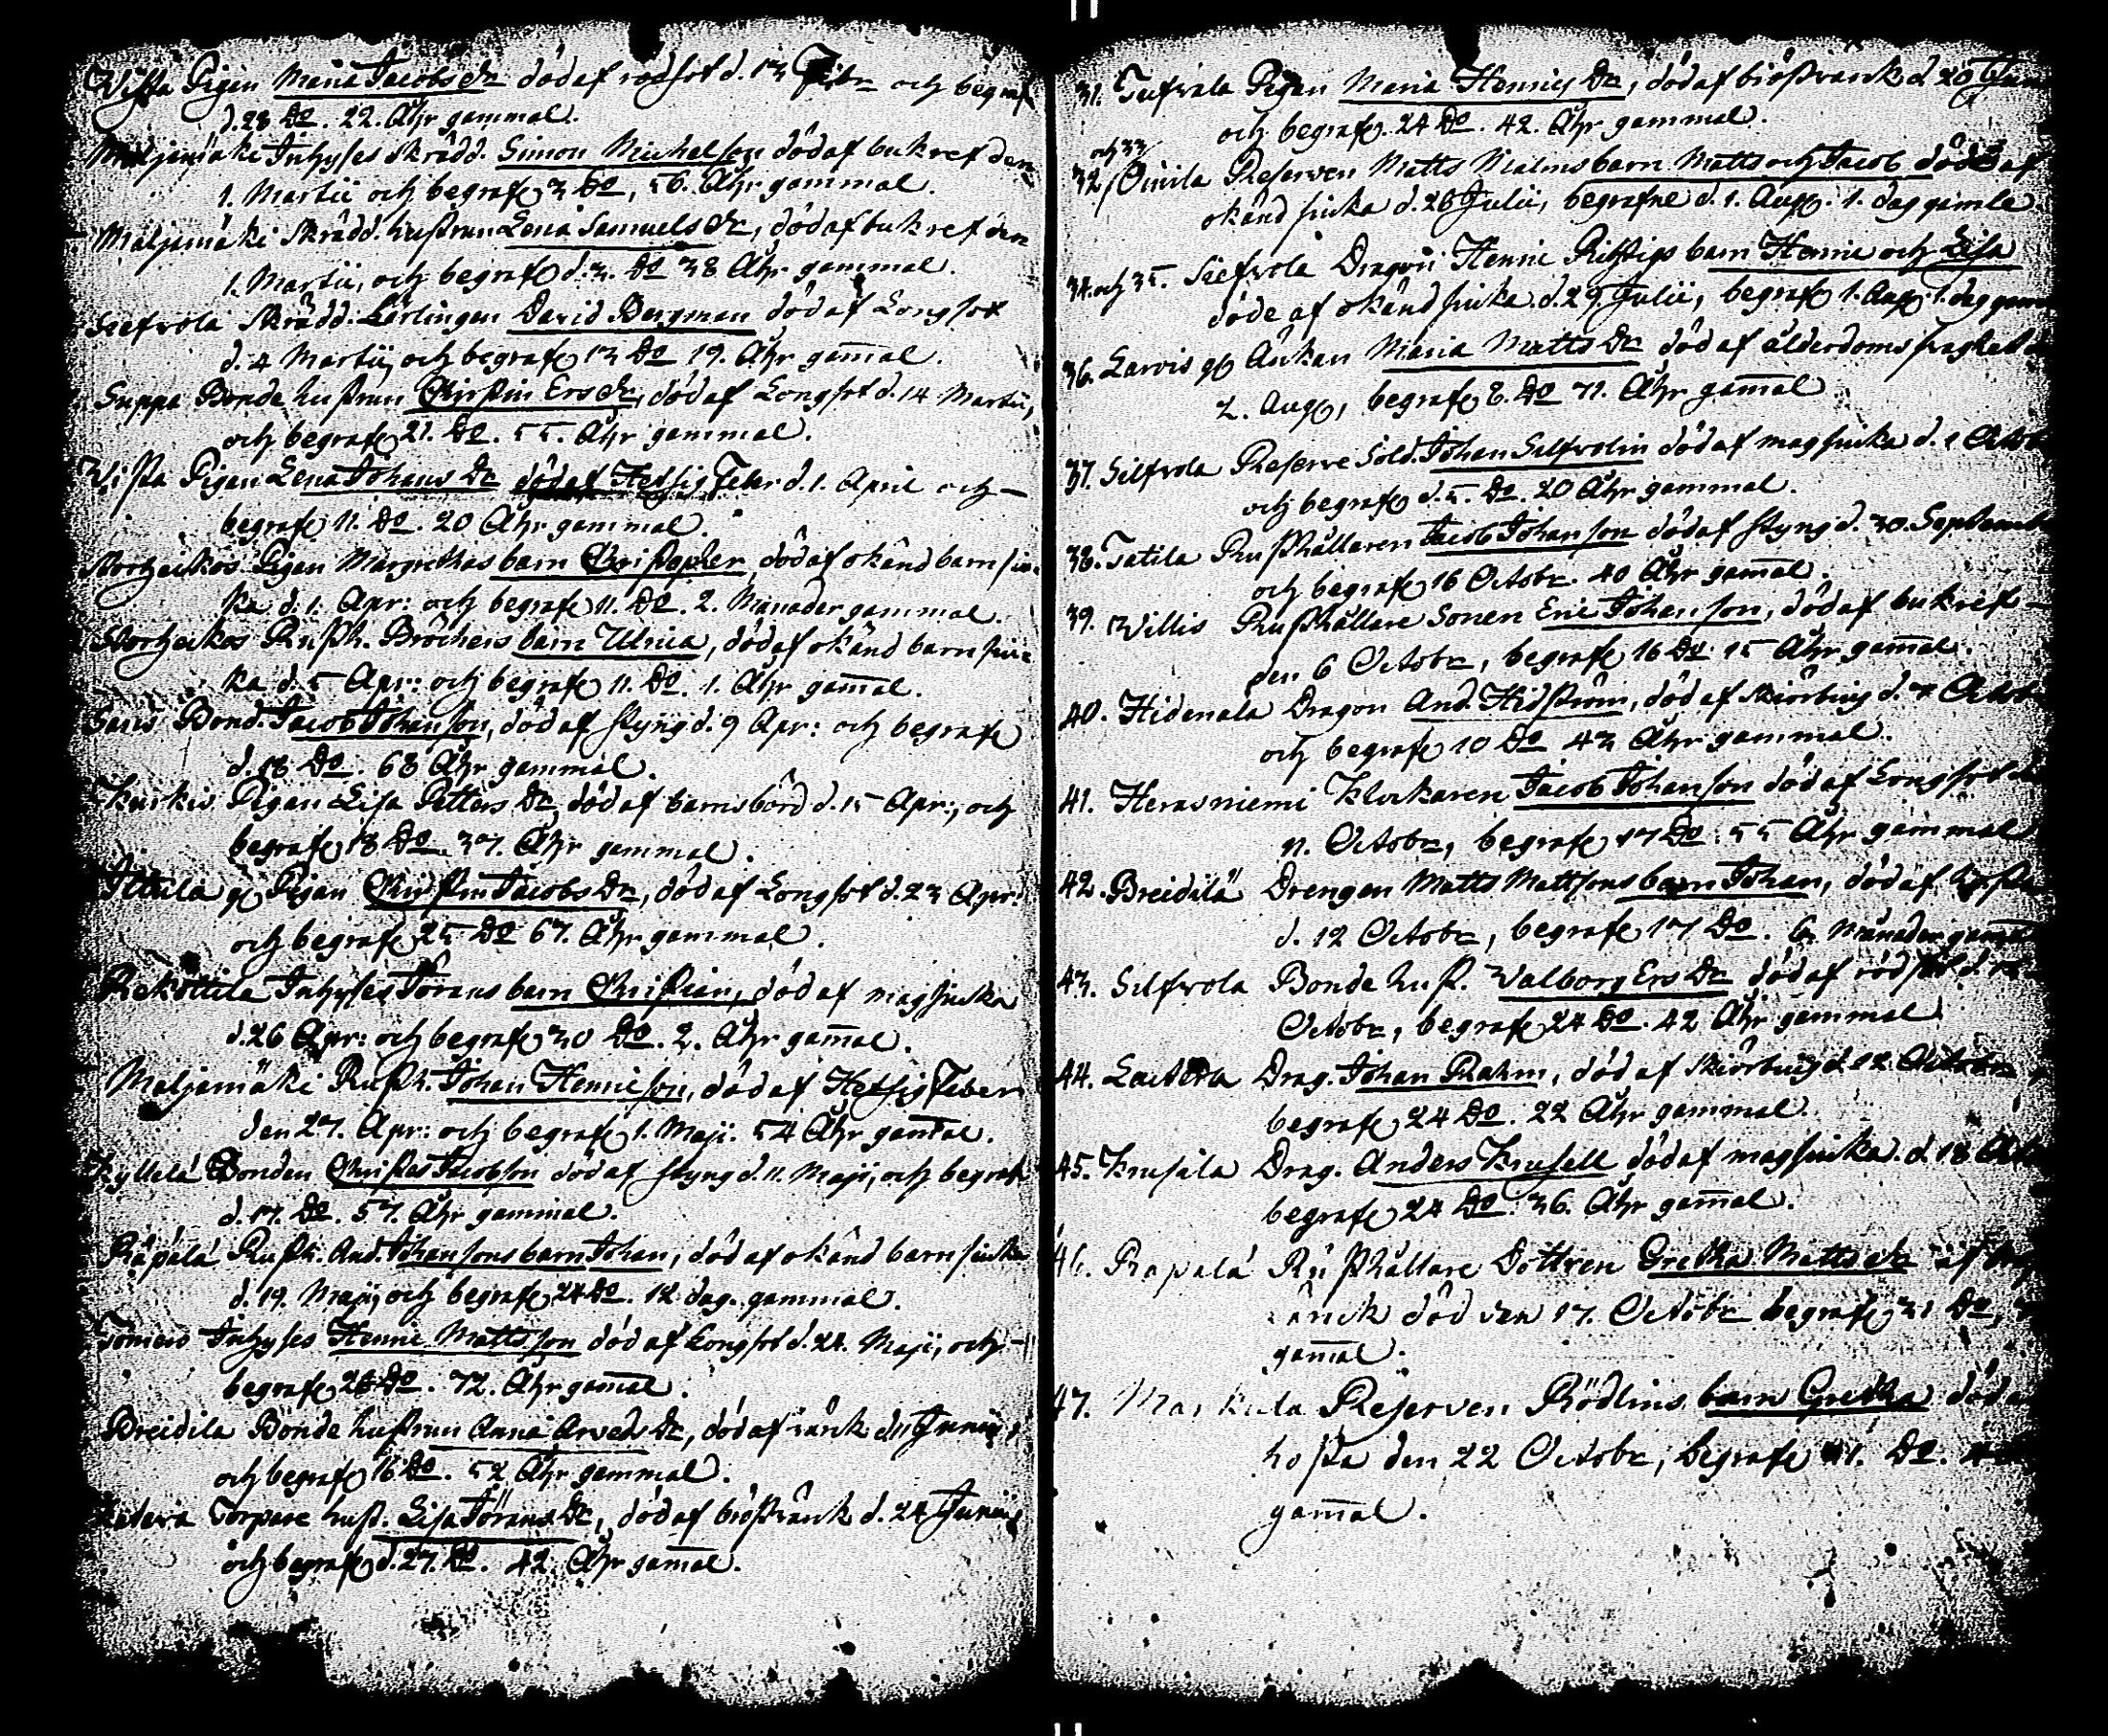 Wista Pigan Maria Jacobs Dr död af rödsot d. 13 Febr och begrafn
d. 28 Do. 22. Åhr gammal.
Maljamäki Inhyses skrädd. Simon Michelson död af bukref den
1. Martii och begrafn 3 Do, 56. Åhr gammal.
Maljamäki Skrädd. hustrun Lena Samuels Dr, död af bukref den
1. Martii, och begrafn d. 3. Do 38 Åhr gammal.
Seefvola Skrädd. Lärlingen David Bergman död af Longsot
d. 4 Martii, och begrafn 13 Do 19. Åhr gamal.
Suppa Bonde hustrun Christin Ers Dr, död af Longsot d. 14 Martii,
och begrafn 21. Do. 55. Åhr gammal.
Wista Pigan Lena Johans Dr död af Hetsig Feber d. 1. April och
begrafn 11. Do. 20 Åhr gammal.
Storheikos Pigan Margrethas barn Christopher, död af okänd barnsju-
ka d. 1. Apr: och begrafn 11. Do. 2. Månader gammal.
Storheikos Rusth. Brôchers barn Ulrica, död af okänd barnsju-
ka d. 5 Apr: och begrafn 11. Do. 1. Åhr gamal.
Bond. Jacob Johanson, död af styng d. 9 Apr: och begrafn
d. 18 Do. 68 Åhr gammal.
Pigan Lisa Petters Dr, död af barnsbörd d. 15 Apr:, och
begrafn 18 Do. 37. Åhr gammal.
Ittala Pigan Christin Jacobs Dr, död af Longsot d. 23 Apr:
och begrafn 25 Do 67. Åhr gammal.
Rekottila Inhyses Jörans barn Christian, död af magsjuka
d. 26 Apr: och begrafn 30 Do. 2. Åhr gamal.
Maljamäki Rusth. Johan Hennieson, död af Hetsig Feber
den 27. Apr: och begrafn 1. Maji. 54 Åhr gamal.
Kyllelä Bonden Christer Jacobson död af styng d. 11. Maji, och begrafn
d. 17. Do. 57. Åhr gammal.
Räpälä Rusth. And. Johansons barn Johan, död af okänd barnsjuka
d. 19. Maji, och begrafn 24 Do. 12 dag. gammal.
Inhyses Hennie Mattsson död af Longsot d. 24. Maji, och
begrafn 26 Do. 72. Åhr gamal.
Breidila Bonde hustrun Anna Arveds Dr, död af ränk d. 11 Junii,
och begrafn 16 Do. 52 Åhr gammal.
Torpare hust. Lisa Jörans Dr, död af bröstränk d. 24 Junii,
och begrafn d. 27. Do. 42. Åhr gamal.
31. Pigan Maria Hennies Dr, död af bröstränk d. 20
och begrafn. 24 Do. 42. Åhr gammal.
32, och 33 Oinila Reserven Matts Malms barn Matts och Jacob döde af
okänd siuka d. 26 Julii, begrafne d. 1. Aug. 1. dag gamle
34. och 35. Seefvola Dragon Hennie Ristigs barn Hennie och Lisa
döde af okänd siuka d. 29 Julii, begrafn 1. Aug. 1. dag
36. Larvis Änkan Maria Matts Dr död af ålderdoms svaghet
2. Aug, begrafn 8. Do 71. Åhr gamal
37. Silfvola Reserve Sold. Johan Silfvolin död af magsiuka d. 1 Octob
och begrafn d. 5. Do. 20 Åhr gammal.
38. Tatila Rusthållaren Jacob Johanson död af styng d. 30. Septemb
och begrafn 16 Octobr. 40 Åhr gamal.
39. Willis Rusthållare Sonen Eric Johanson, död af bukref
den 6 Octobr, begrafn 16 Do 15 Åhr gamal.
40. Hidenala Dragon And. Hidström, död af skiörbiug d. Octob
och begrafn 10 Do 43 Åhr gammal.
41. Herasniemi Klockaren Jacob Johanson död af Longsot
11. Octobr, begrafn 17 Do. 55 Åhr gammal
42. Breidilä Drengen Matts Mattsons barn Johan, död af
d. 12 Octobr, begrafn 17 Do. 6 Månader
43. Silfvola Bonde hust. Walborg Ers Dr död af rödsot d.
Octobr, begrafn 24 Do. 42 Åhr gammal
44. Drag. Johan Rahm, död af skiörbiug d. 12 Octobr
begrafn 24 Do. 22 Åhr gammal.
45. Krusala Drag. Anders Krusell död af magsiuka. d. 18
begrafn 24 Do. 36. Åhr gamal.
46. Rapala Rusthållare Dottren Gretha Matts Dr af
ränck död den 17. Octobr begrafn 31 Do,
gamal.
47. Reserven Rödlins barn Gretha död
hosta den 22 Octobr, begrafn 31. Do.
gamal.